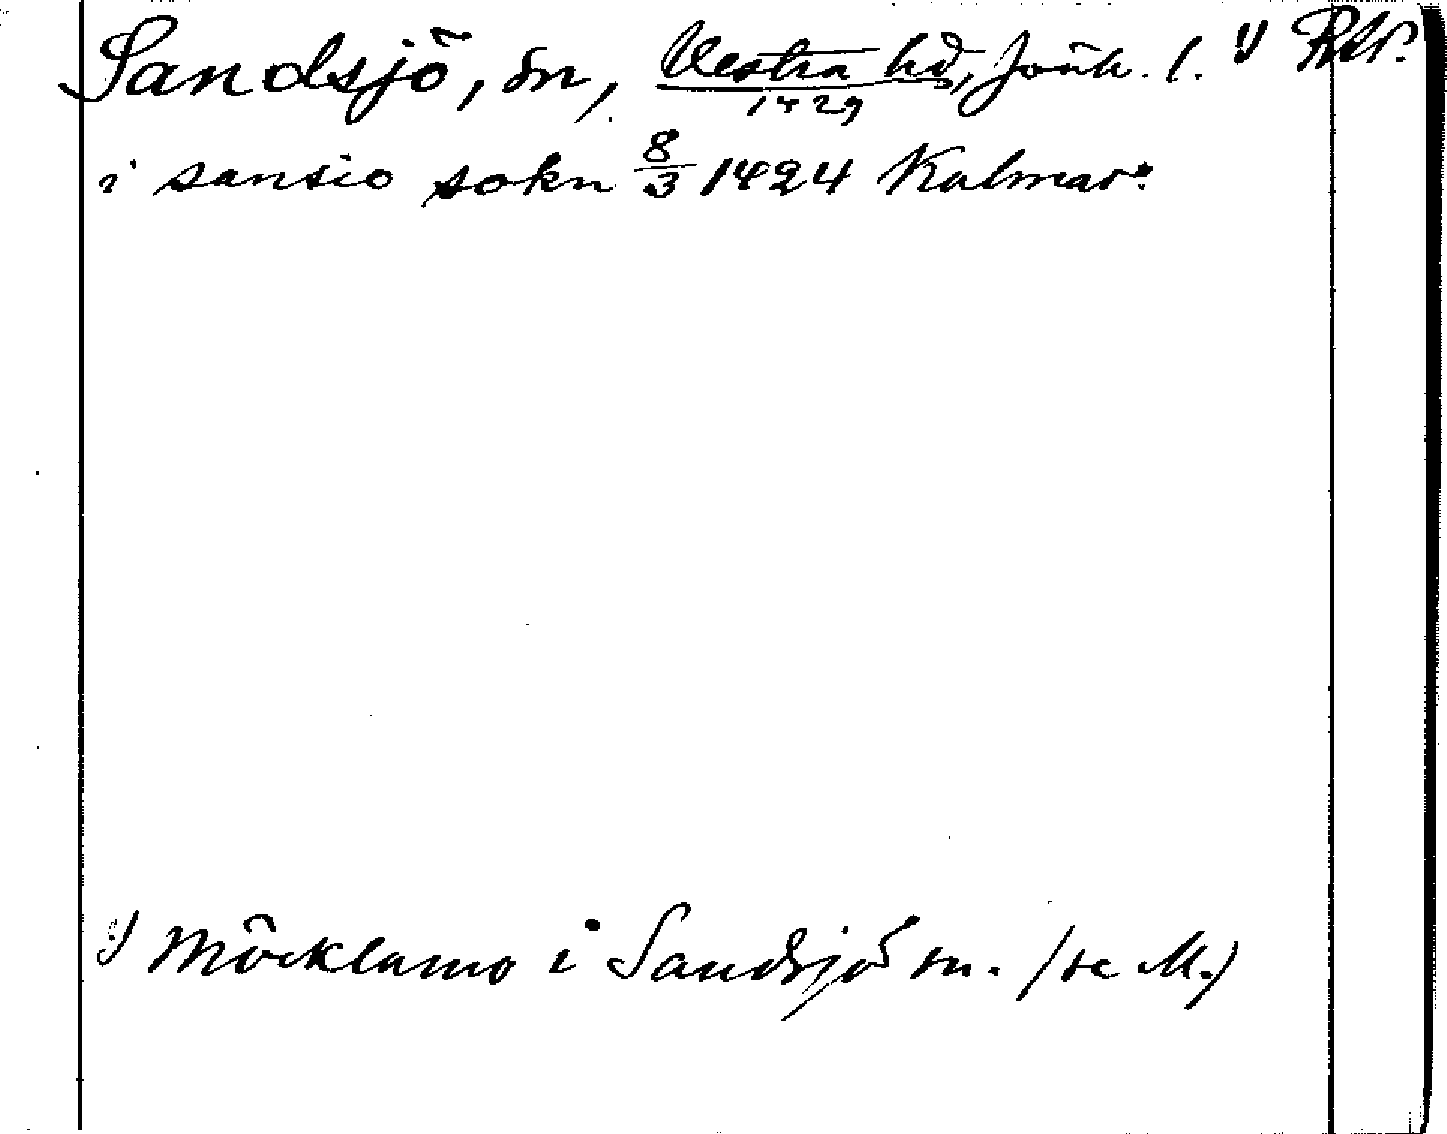 Sandsjö, sn, Vestra hd, Jönk. l. 1) RAP.
1429
i sansio sokn 8/3 1424 Kalmar.
1) Möcklamo i Sandsjö sn. (se M.)